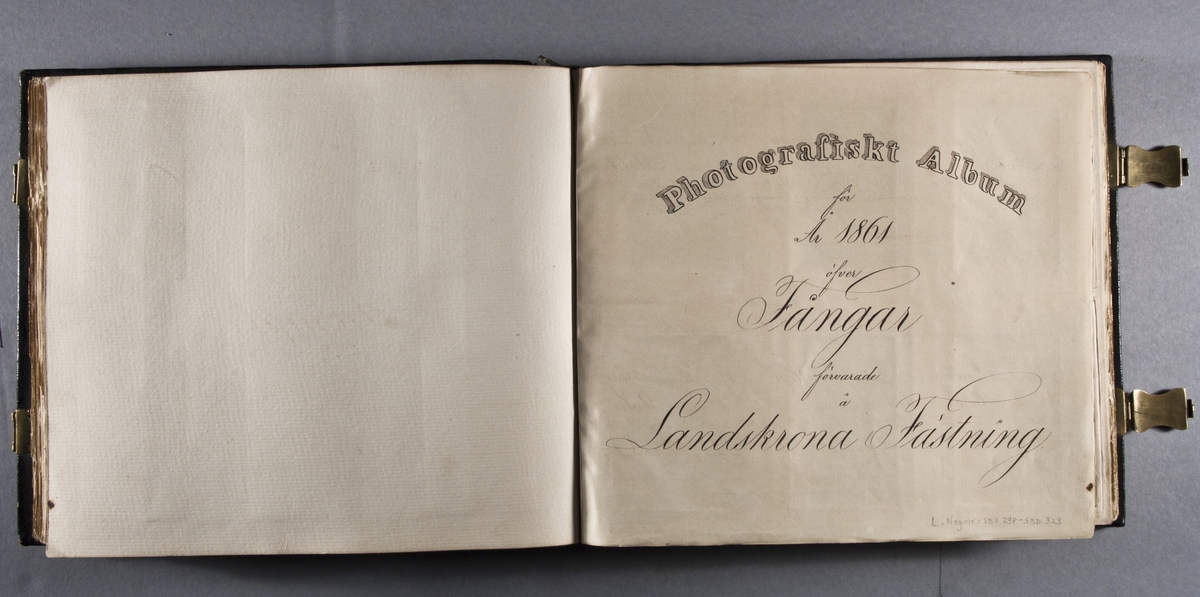 Photografiskt Album
för
År 1861
öfver
Fångar
förvarade
å
Landskrona Fästning
L. Neg nr: 5BD 298 - 5BD 323